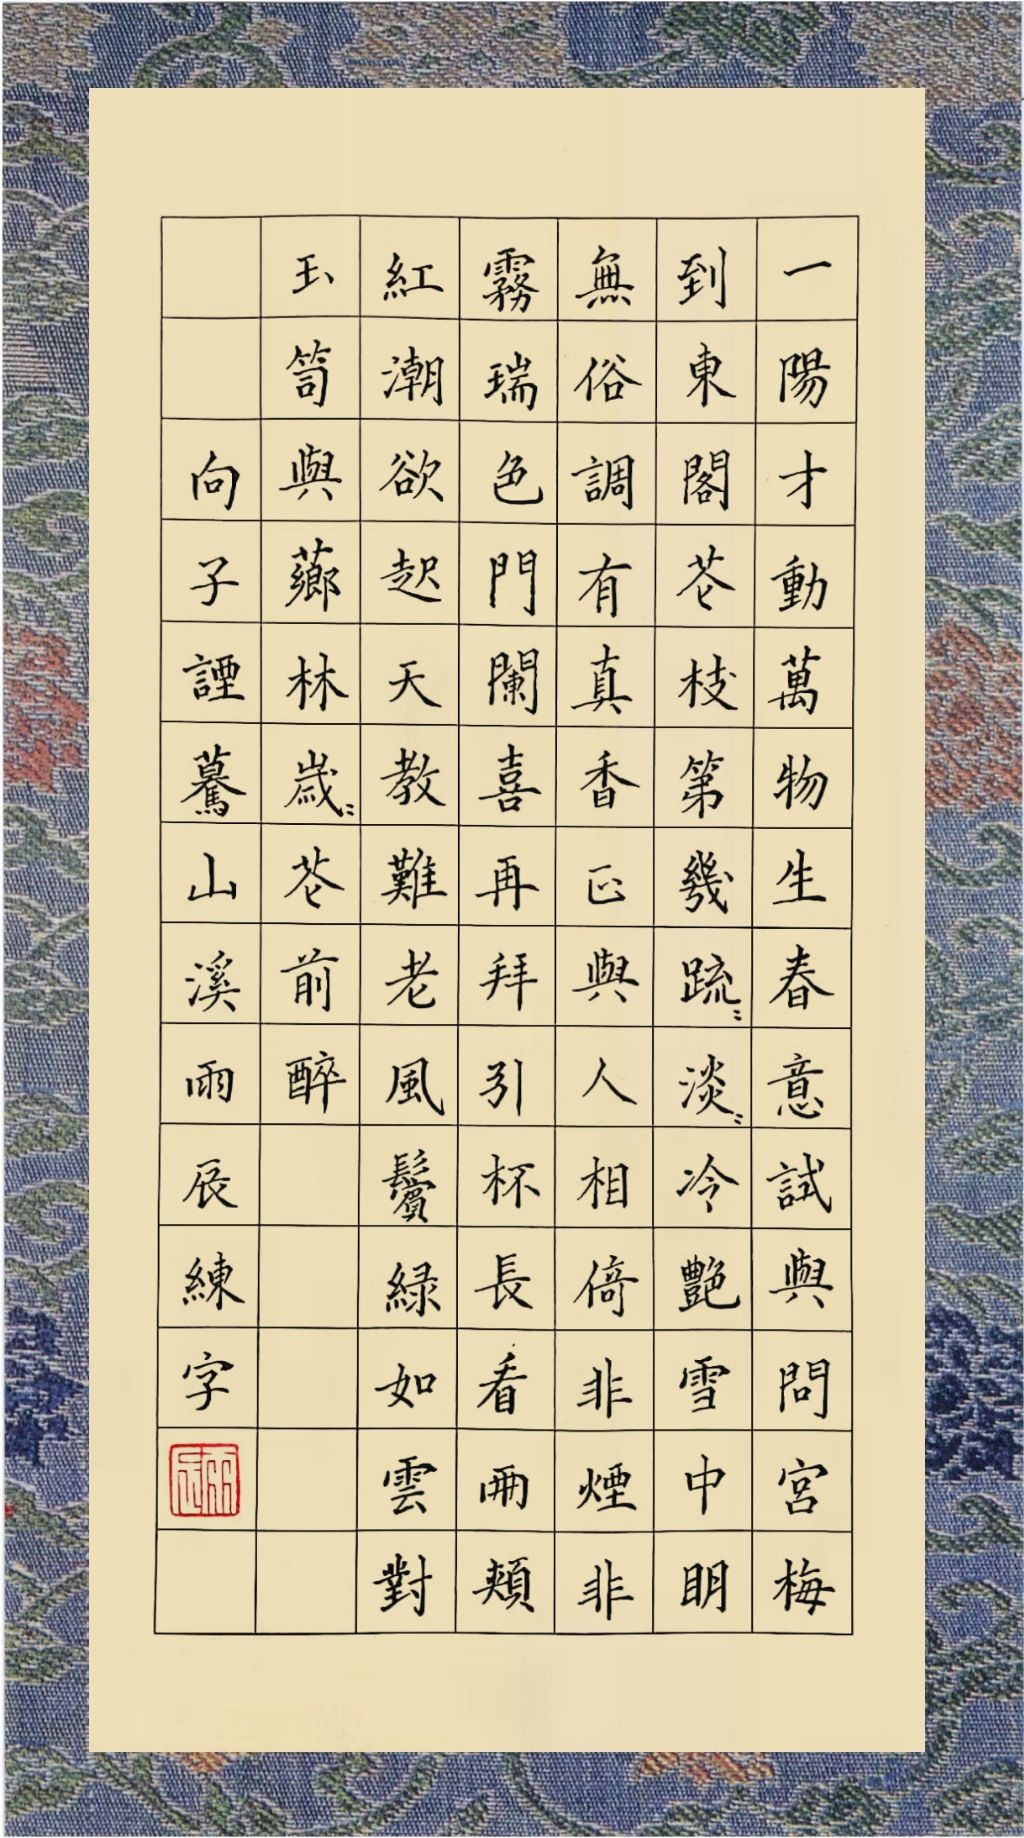 一陽才動萬物生春意試與問宮梅
到東閣芲枝第幾疏〻淡〻冷艷雪中明
無俗調有真香正與人相倚非煙非
霧瑞色門闌喜再拜引杯長看兩頰
紅潮欲起天教難老風鬢緑如雲對
玉笥與薌林歲〻芲前醉
向子諲驀山溪雨辰練字
雨辰